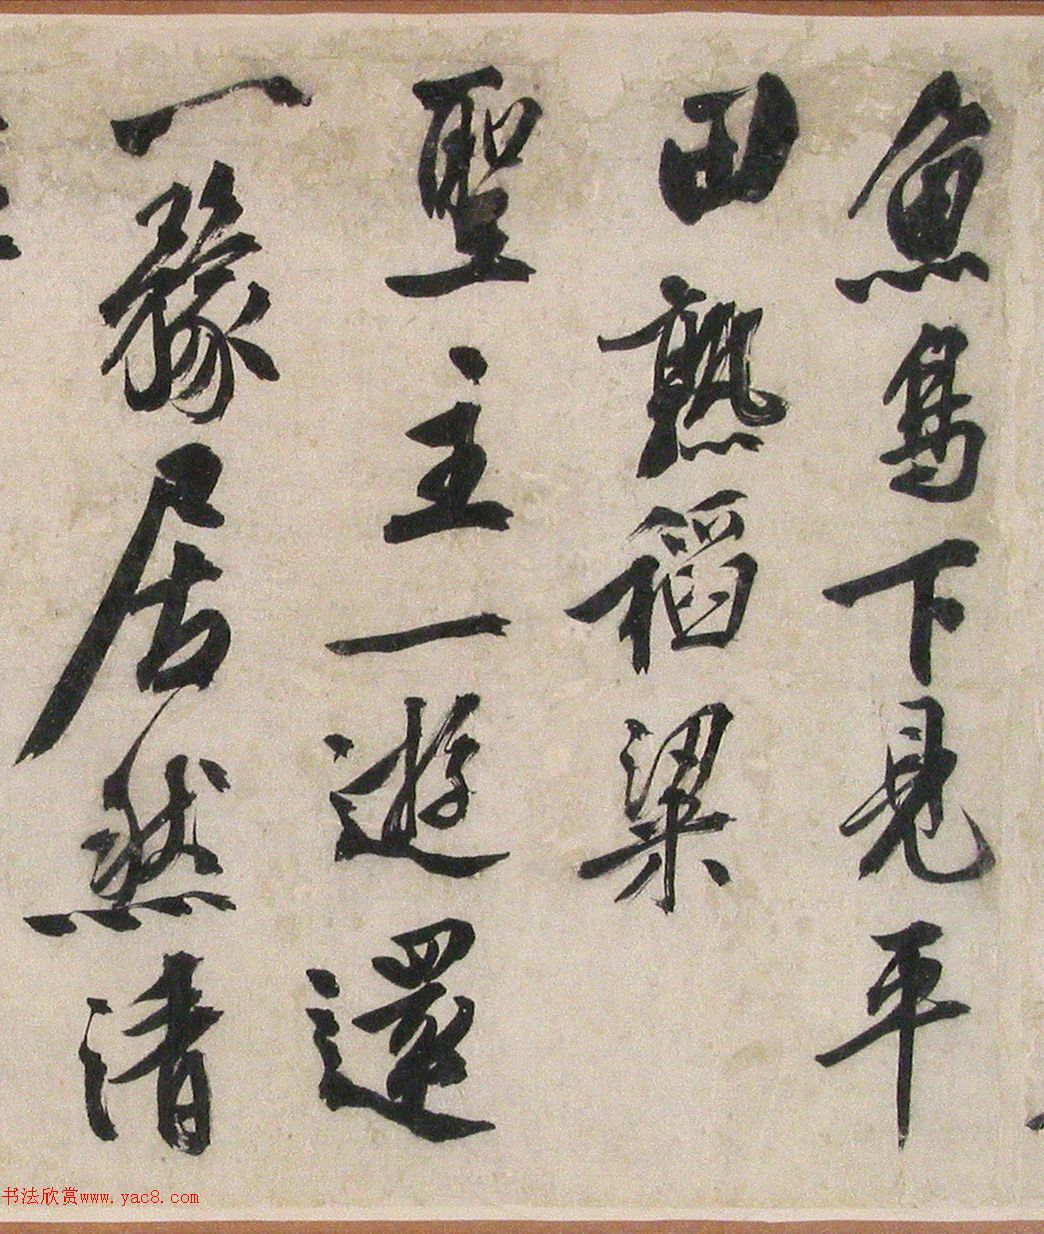 魚鳥下見平
田熟稻粱
聖主一遊還
一豫居然清
书法欣赏www.yac8.com